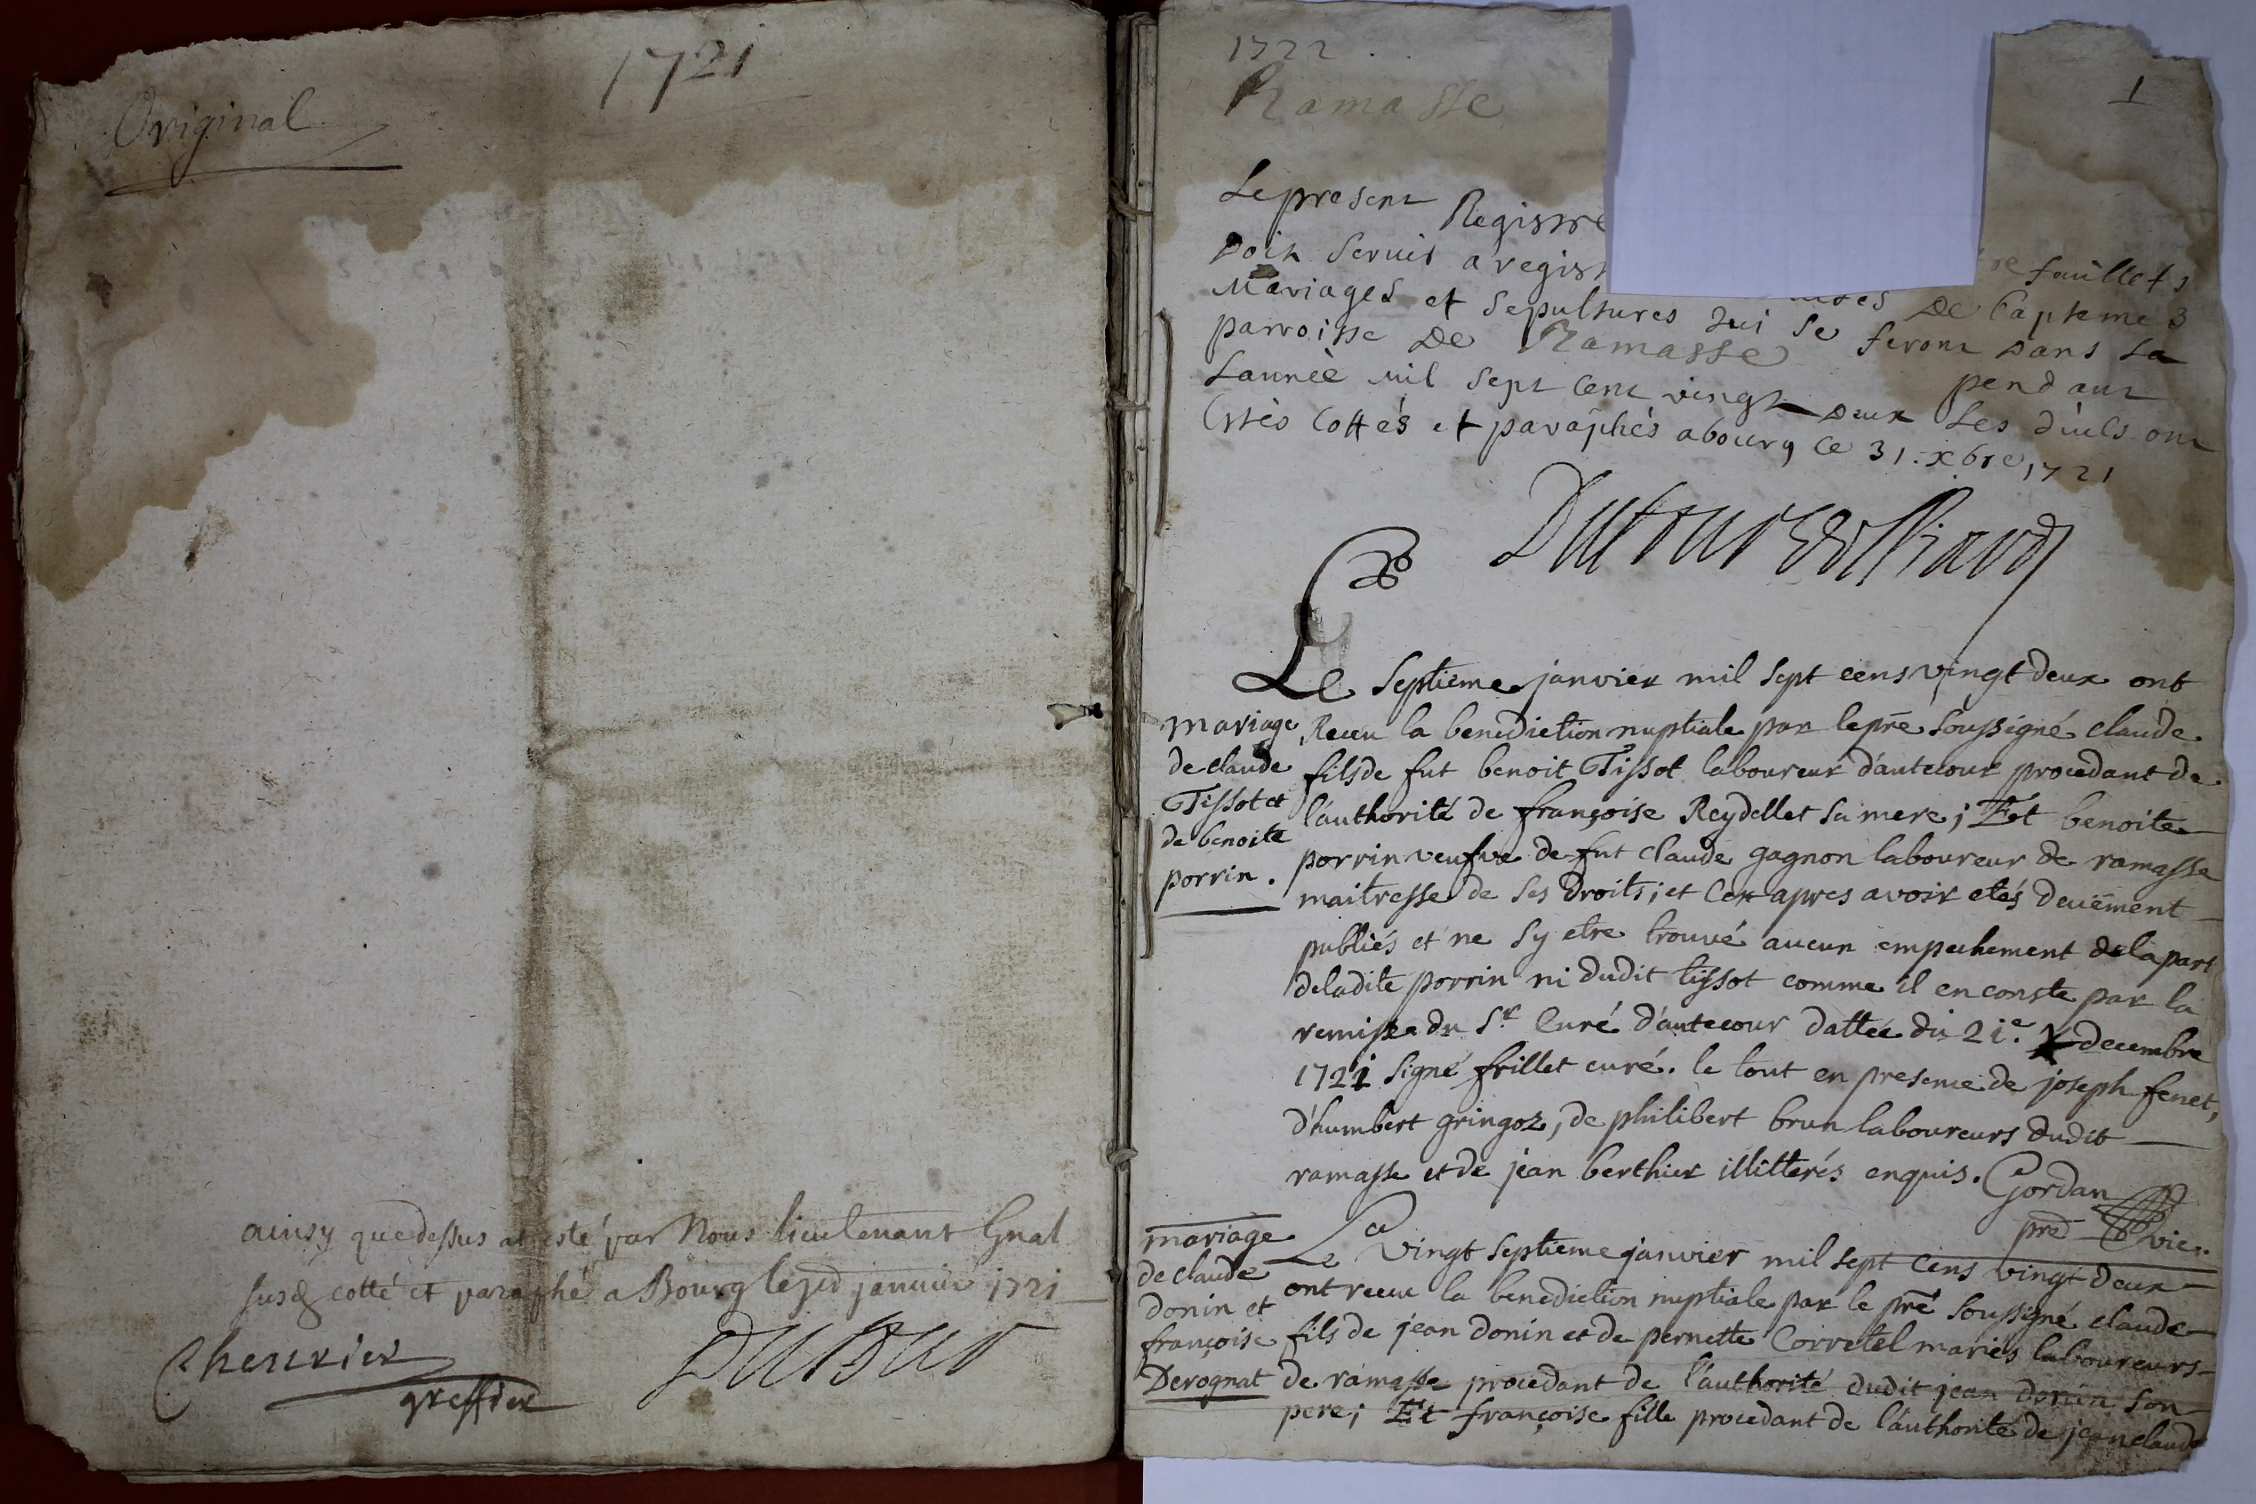 1721
Original
ainsy que dessus at esté par Nous lieutenant Gnal
susd cotté et paraphé a Bourg le janvier 1721
Chenevier
greffier
Dutour
1722
1
Ramasse
Le present Registre
re feuillets
doit servir a regist
de Baptemes
Mariages et sepultures qui se feront dans la
parroisse De Ramasse pendant
Lannèe mil sept cent vingt deux Les quels ont
Estès Cottés et paraphés a bourg ce 31. xbre 1721
Le Septieme janvier mil sept cens vingt deux ont
Receu la benediction nuptiale par le pre soussigné claude
fils de fut benoit Tissot laboureur d'autecour procedant de
l'authorité de françoise Reydellet sa mere; Et benoite
porrin veufve de fut claude gagnon laboureur de ramasse
maitresse de ses droits; et ce apres avoir etés deuëment
publiés et ne sy etre trouvé aucun empechement de la part
de ladite porrin ni dudit tissot comme il en conste par la
remisse du Sr. Curé d'autecour dattée du 21e. decembre
1721 signé frillet curé. le tout en presence de joseph fenet,
d'humbert gringoz, de philibert brun laboureurs dudit
ramasse et de jean berthier illitterés enquis. Gordan
pre vic.
mariage
de claude
Tissot et
de benoite
porrin.
mariage
de claude
donin et
françoise
Derognat
Le vingt septieme janvier mil sept cens vingt deux
ont receu la benediction nuptiale par le pre soussigné claude
fils de jean donin et de pernette Corretel mariés laboureurs
de ramasse procedant de l'authorité dudit jean donin son
pere; Et françoise fille procedant de l'authorité de jean claude